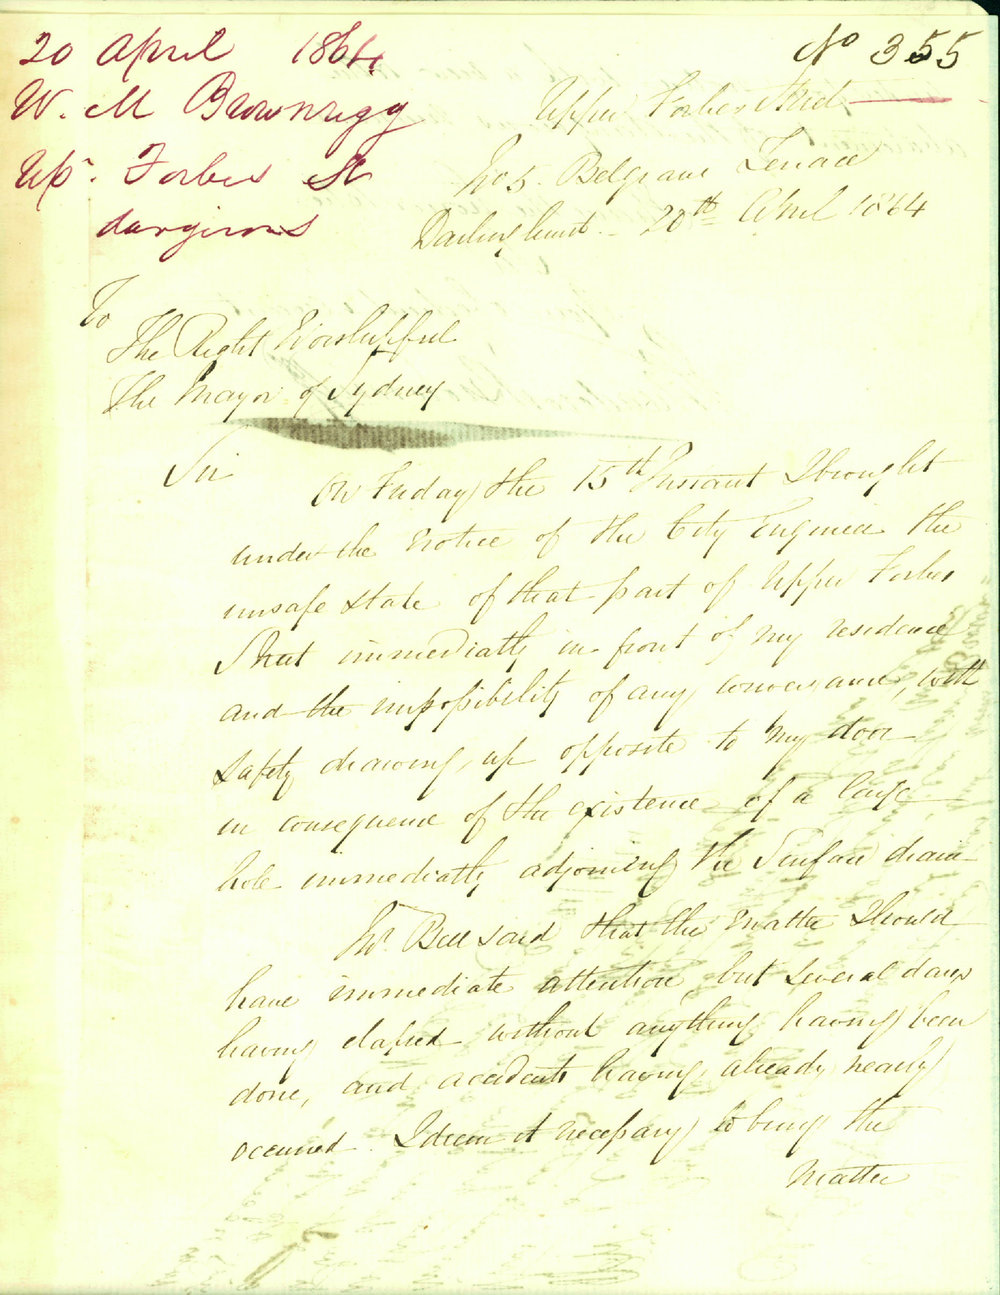 20 April 1864
W. M Brownrigg
Upr. Forbes St
dangerous
No 355
Upper Forbes Street
No 5. Belgrave Terrace
Darlinghurst. 20th April 1864
To
The Right Worshipful
The Mayor of Sydney
Sir
On Friday the 15th Instant I brought
under the Notice of the City Engineer the
unsafe state of that part of Upper Forbes
Street immediately in front of my residence
and the impossibility of any conveyance, with
safety drawing up opposite to my door
in consequence of the existence of a large
hole immediately adjoining the Surface drain
Mr. Bell said that the matter should
have immediate attention, but several days
having elapsed without anything having been
done, and accidents having already nearly
occurred. I deem it necessary to bring the
matter